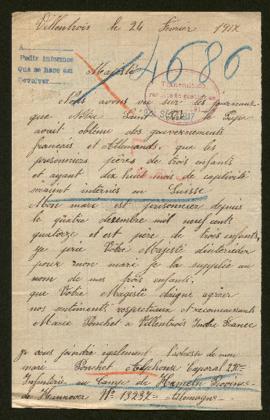 Villentrois le 24 Février 1917
A
Pedir informes
que se hace en
devolver
Majesté
4686
Nous avons vu sur les journaux
que Notre Saint Père le Pape
avait obtenu des gouvernements
français et Allemands que les
prisonniers pères de trois enfants
et ayant dix huit mois de captivité
seraient internés en Suisse
Mon mari est prisonnier depuis
le quatre décembre mil neuf cent
quatorze et est père de trois enfants,
je prie Votre Majesté d'intercéder
pour mon mari je la supplie au
nom de mes trois enfants,
que Votre Majesté daigne agréer
nos sentiments respectueux et reconnaissants
Marie Ponchet à Villentrois Indre France
Je vous joindre également l'adresse de mon
mari Ponchet Alphonse Caporal
Infanterie au Camp de Hameln Province
de Hannover No 13237 Allemagne